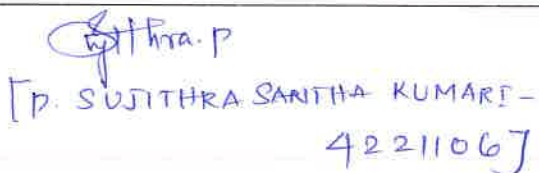 Sujithra.P
[P. SUJITHRA SANTHA KUMARI -
42211067]